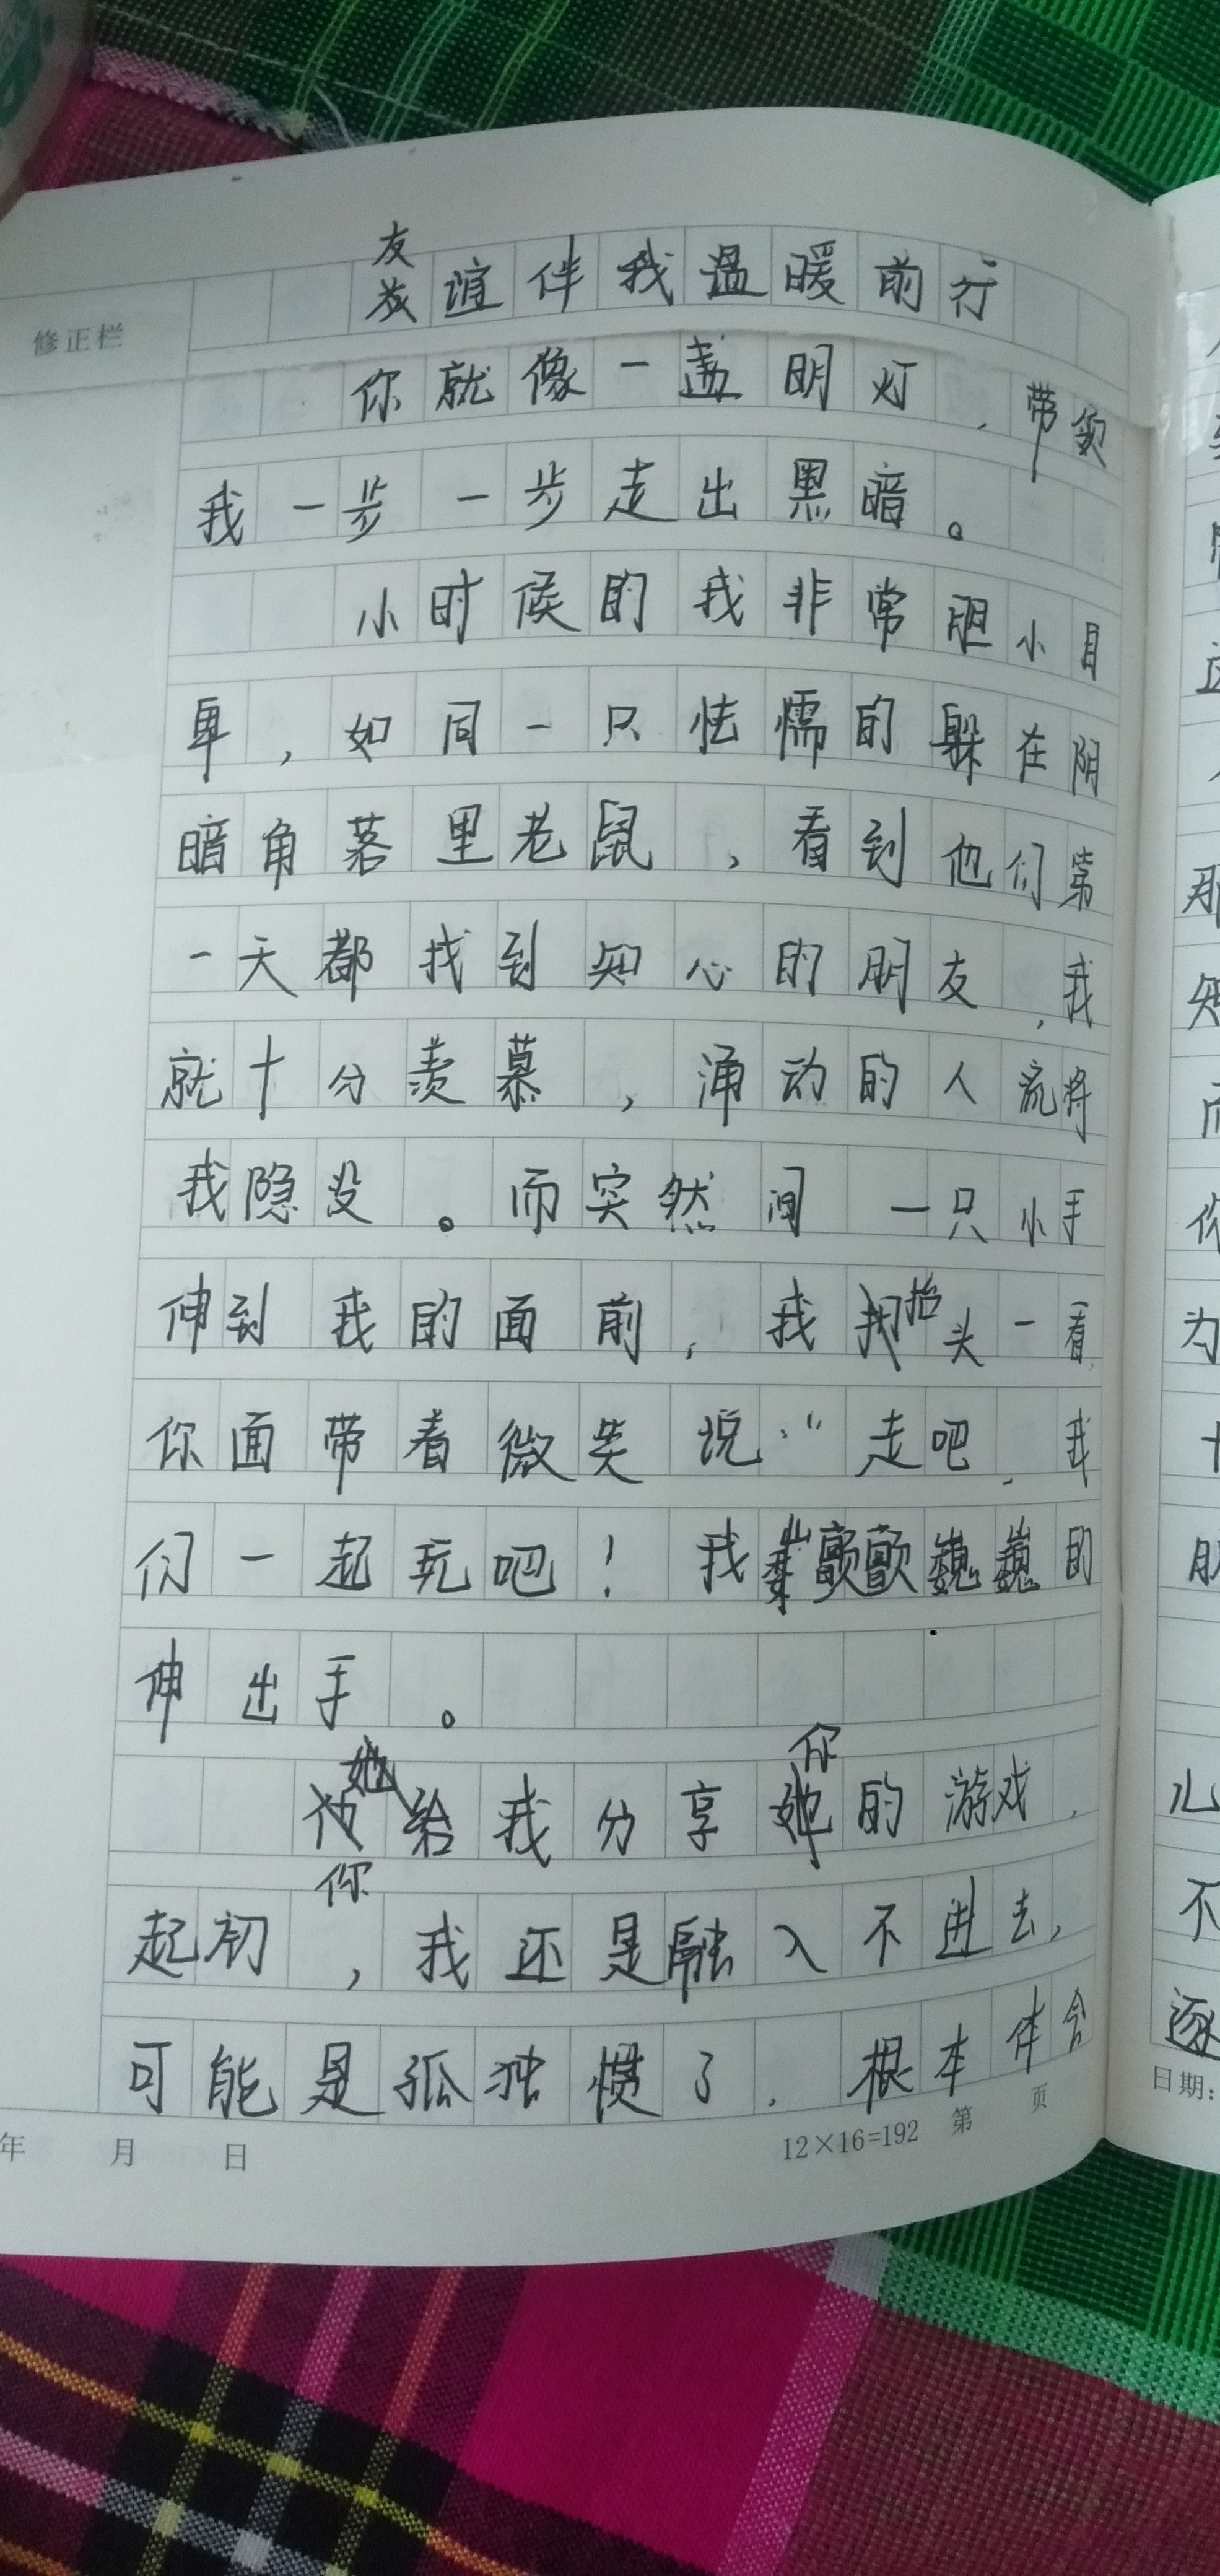 友谊伴我温暖前行
修正栏
你就像一盏明灯，带领
我一步一步走出黑暗。
小时候的我非常胆小自
卑，如同一只怯懦的躲在阴
暗角落里老鼠，看到他们第
一天都找到知心的朋友，我
就十分羡慕，涌动的人流将
我隐没。而突然间一只小手
伸到我的面前，我抬头一看，
你面带着微笑说：“走吧，我
们一起玩吧！我颤颤巍巍的
伸出手。
你给我分享你的游戏，
起初，我还是融入不进去，
可能是孤独惯了，根本体会
年 月 日
12×16=192 第 页
日期：